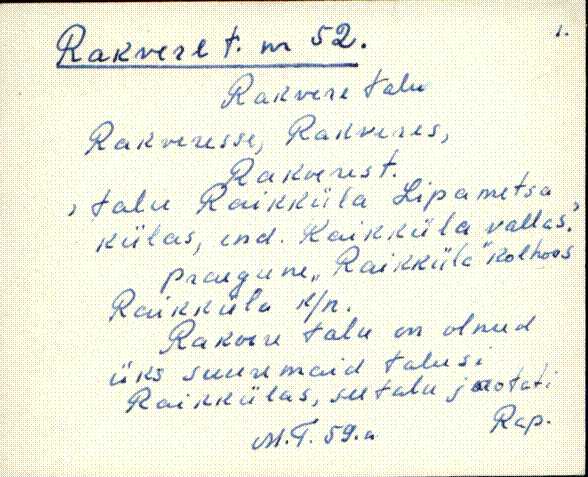 Rakvere t. nr 52. 1.
Rakvere talu
Rakveresse, Rakveres,
Rakverest.
, talu Raikküla Lipametsa
külas, end. Raikküla vallas.'
praegune „Raikküla" kolhoos
Raikküla k/n.
Rakvere talu on olnud
üks suuremaid talusi
Raikkülas, see talu jaotati
M.T. 59.a. Rap.